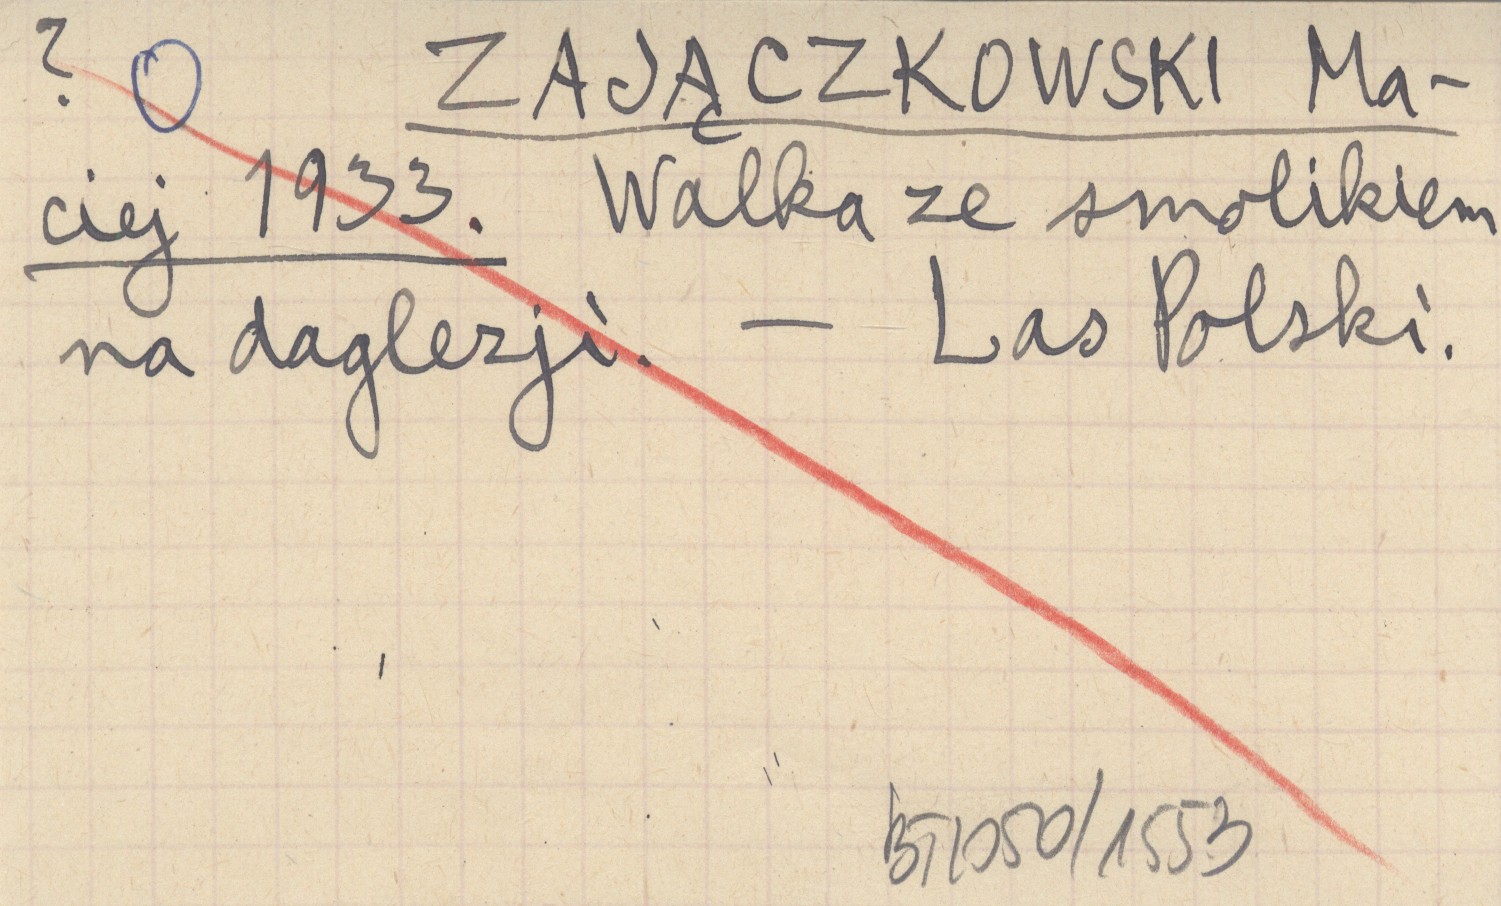 ? O ZAJĄCZKOWSKI Ma-
ciej 1933. Walka ze smolikiem
na daglezji. — Las Polski.
BT1050/1553